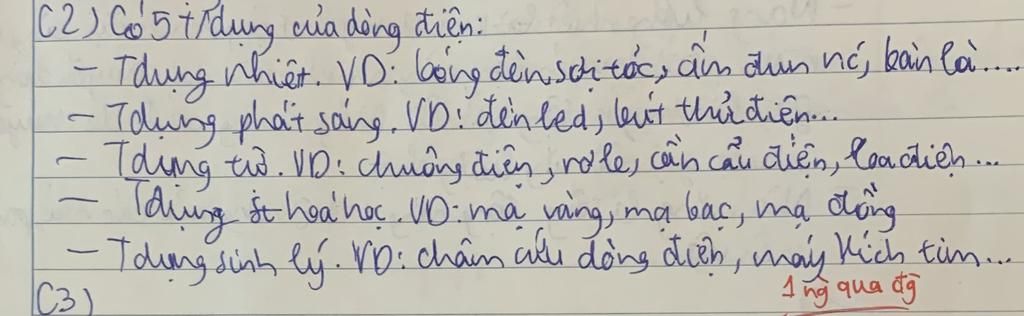 C2) Có 5 t/dụng của dòng điện:
- Tdụng nhiệt. VD: bóng đèn sợi tóc, ấm đun nc, bàn là....
- Tdụng phát sáng. VD: đèn led, bút thử điện...
- Tdụng từ. VD: chuông điện, rơle, cần cẩu điện, loa điện...
- Tdụng hoá học. VD: mạ vàng, mạ bạc, mạ đồng
- Tdụng sinh lý. VD: châm cứu dòng điện, máy kích tim...
C3)
1 ng qua đg